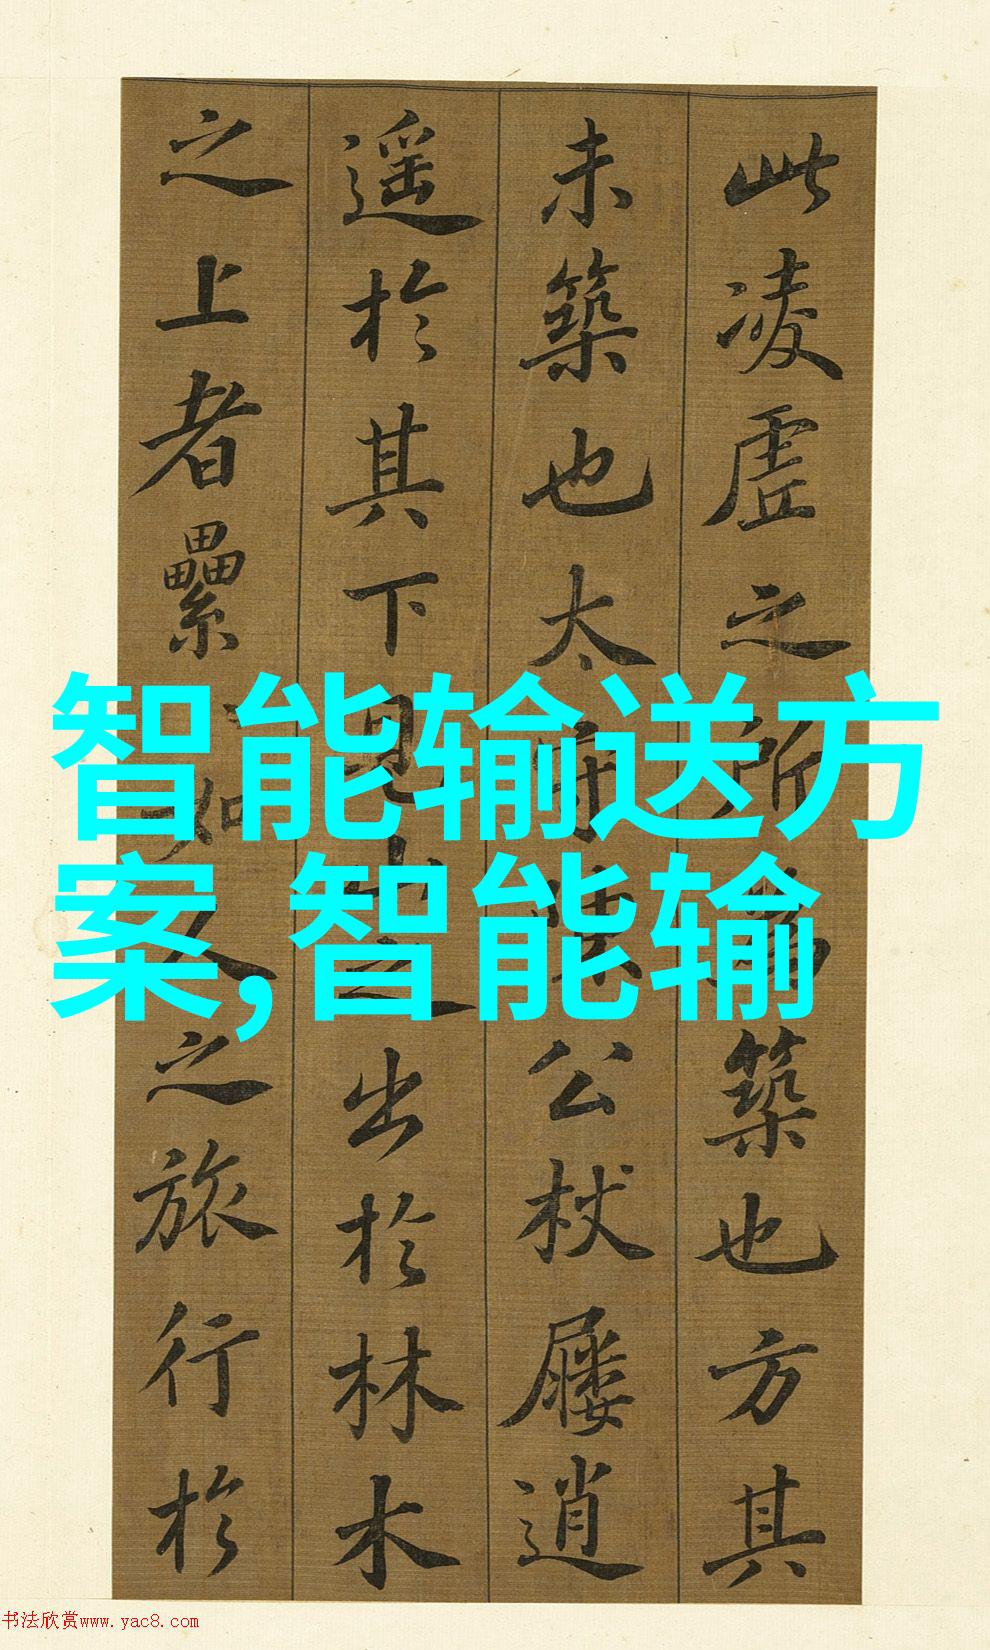 此凌虗之所為築也方其
未築也太守陳公杖屨逍
遥於其下見山之出於林木
之上者纍〻如人之旅行於
智能输送方
案,智能输
书法欣赏www.yac8.com